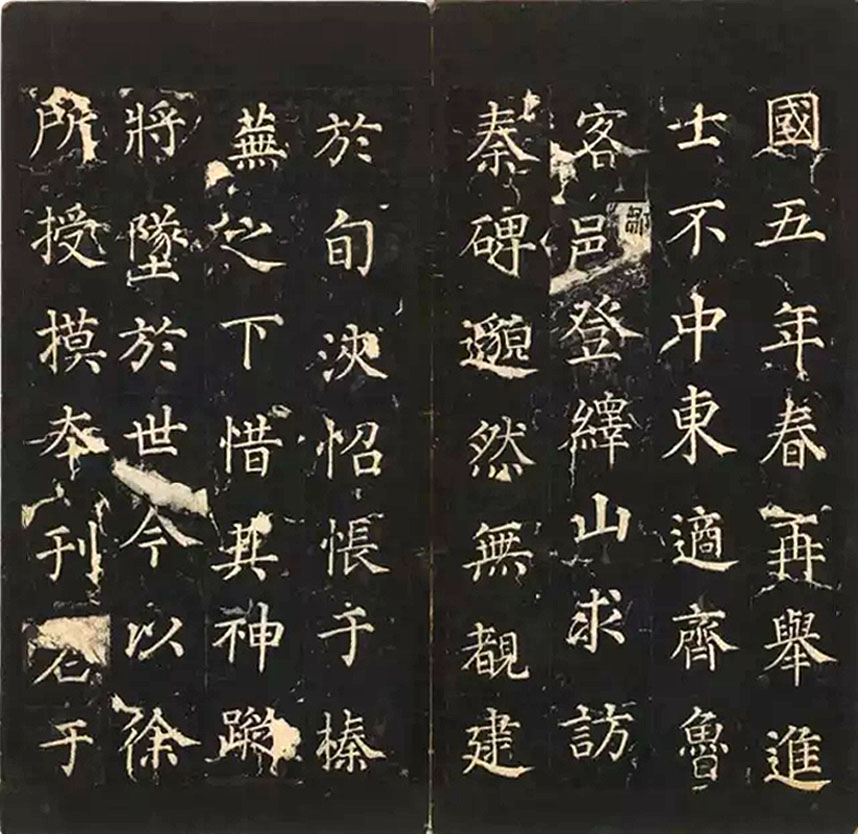 國五年春再舉進
士不中東適齊魯
客鄒邑登繹山求訪
秦碑邈然無覩建
於旬浹怊悵于榛
蕪之下惜其神蹤
將墜於世今以徐
所授摸夲刊石于